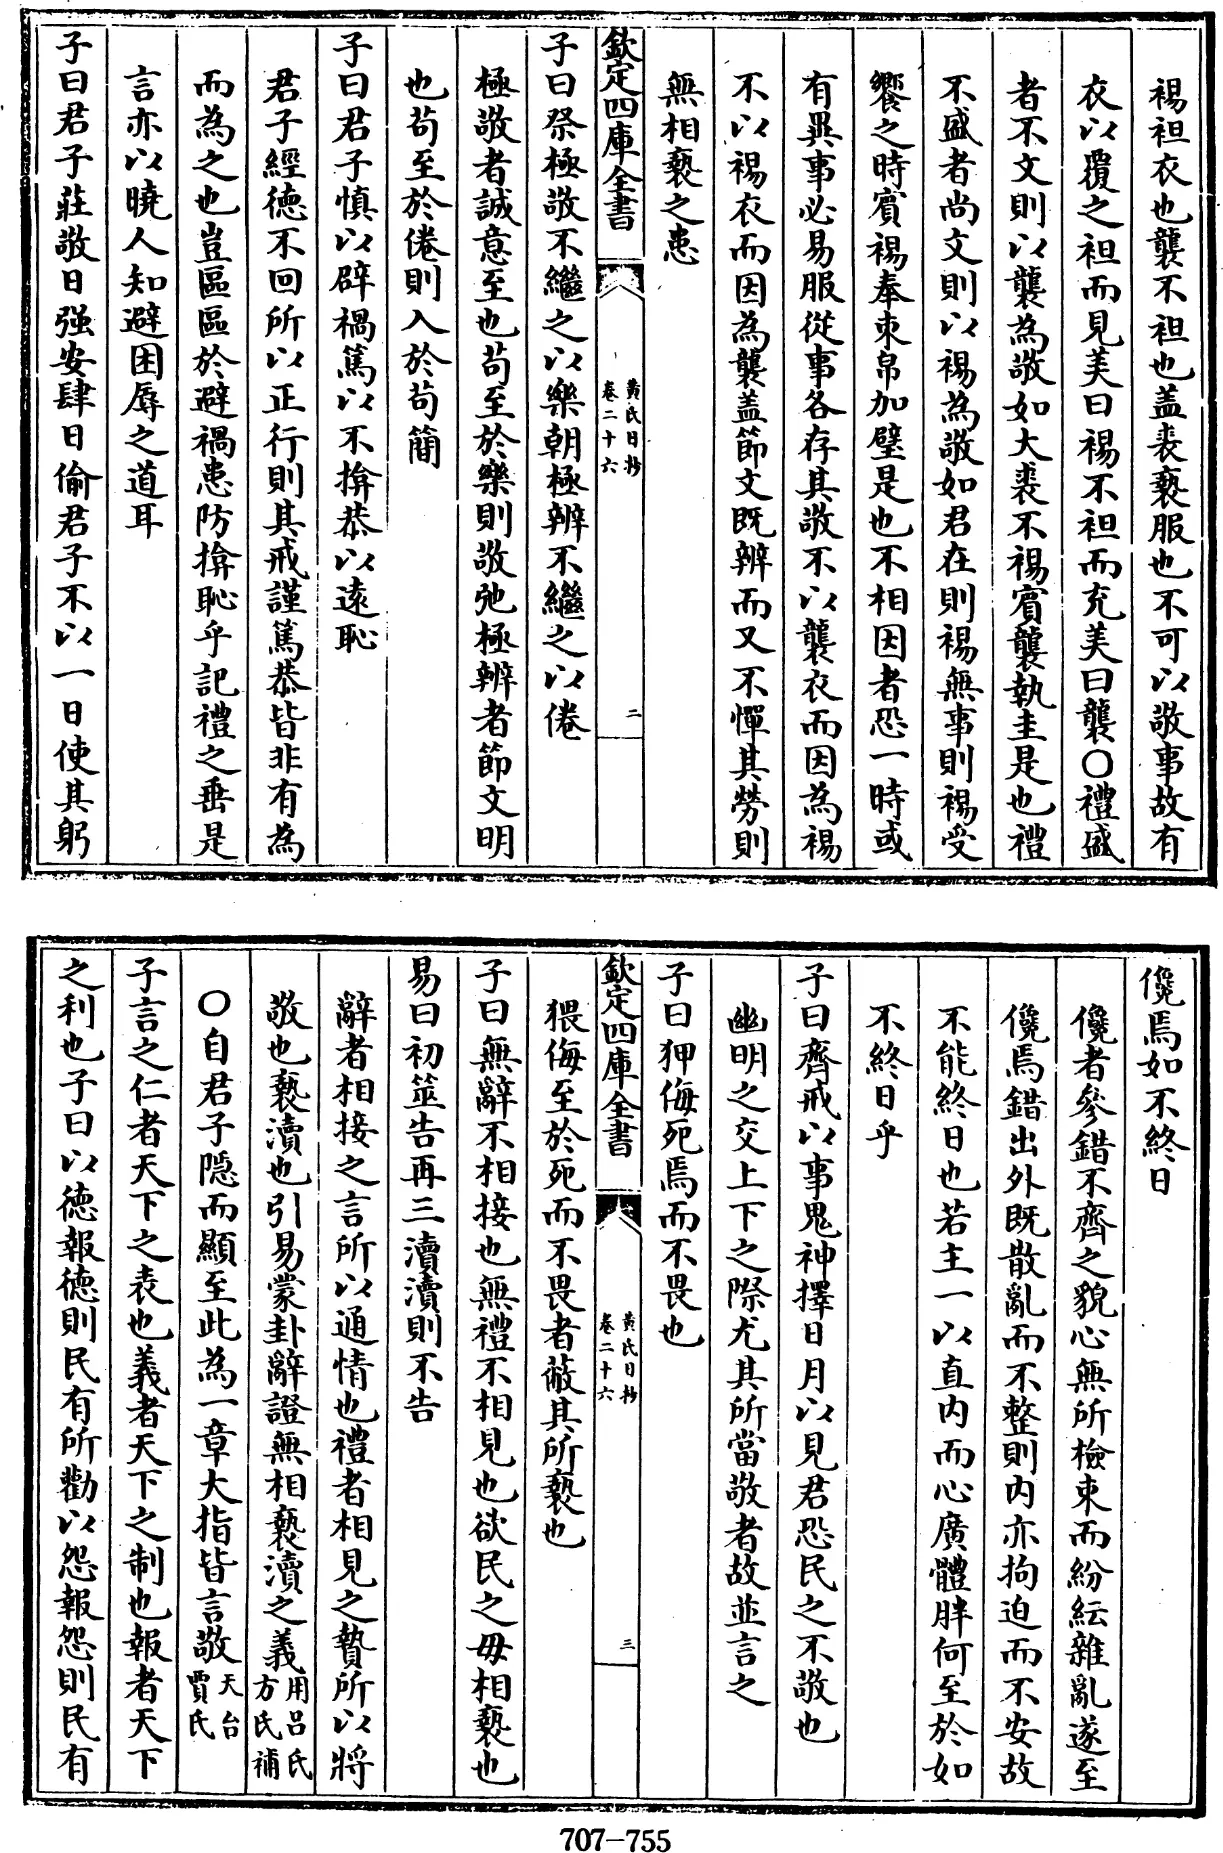 裼袒衣也襲不袒也盖裘褻服也不可以敬事故有
衣以覆之袒而見美曰裼不袒而充美曰襲○禮盛
者不文則以襲為敬如大裘不裼賓襲執圭是也禮
不盛者尚文則以裼為敬如君在則裼無事則裼受
饗之時賓裼奉束帛加璧是也不相因者恐一時或
有異事必易服從事各存其敬不以襲衣而因為裼
不以裼衣而因為襲盖節文既辨而又不憚其勞則
無相褻之患
欽定四庫全書
黃氏日抄
卷二十六
二
子曰祭極敬不繼之以樂朝極辨不繼之以倦
極敬者誠意至也苟至於樂則敬弛極辨者節文明
也苟至於倦則入於苟簡
子曰君子慎以辟禍篤以不揜恭以遠恥
君子經徳不回所以正行則其戒謹篤恭皆非有為
而為之也豈區區於避禍患防揜恥乎記禮之垂是
言亦以曉人知避困辱之道耳
子曰君子莊敬日强安肆日偷君子不以一日使其躬
儳焉如不終日
儳者參錯不齊之貌心無所檢束而紛紜雜亂遂至
儳焉錯出外既散亂而不整則内亦拘迫而不安故
不能終日也若主一以直内而心廣體胖何至於如
不終日乎
子曰齊戒以事鬼神擇日月以見君恐民之不敬也
幽明之交上下之際尤其所當敬者故並言之
子曰狎侮死焉而不畏也
欽定四庫全書
黃氏日抄
卷二十六
三
猥侮至於死而不畏者蔽其所褻也
子曰無辭不相接也無禮不相見也欲民之毋相褻也
易曰初筮告再三瀆瀆則不告
辭者相接之言所以通情也禮者相見之贄所以將
敬也褻瀆也引易蒙卦辭證無相褻瀆之義用呂氏
方氏補
○自君子隠而顯至此為一章大指皆言敬天台
賈氏
子言之仁者天下之表也義者天下之制也報者天下
之利也子曰以徳報徳則民有所勸以怨報怨則民有
707-755